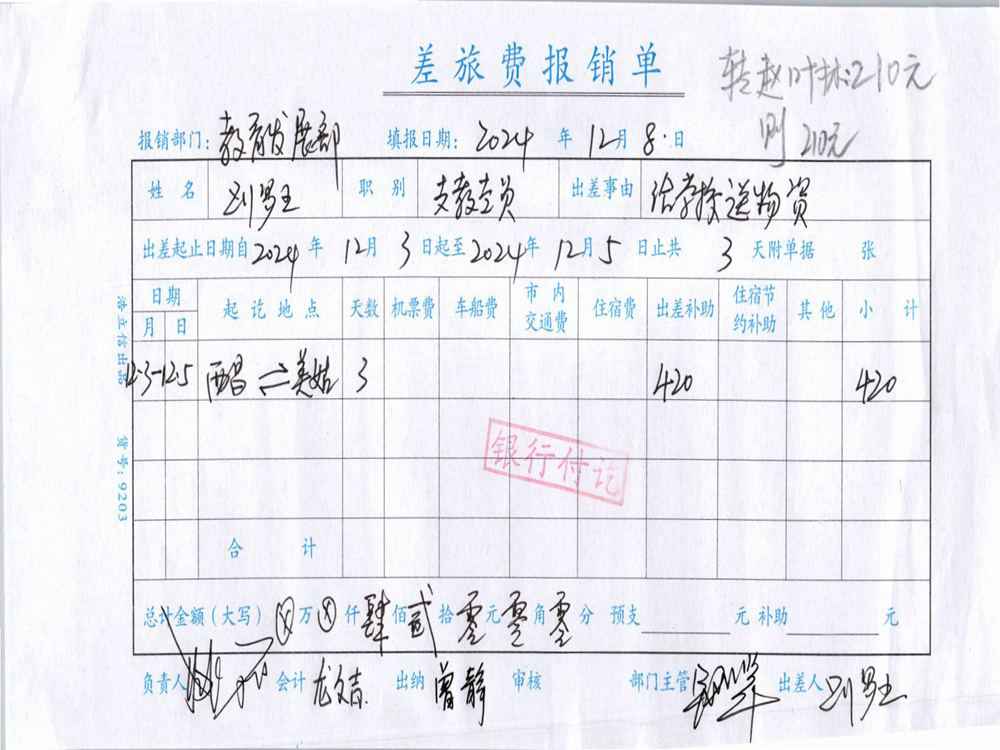 差旅费报销单
转赵叶林:210元
刘 210元
报销部门: 教育发展部 填报日期: 2024 年 12月 8 日
姓名 刘罗王 职别 支教专员 出差事由 给学校送物资
出差起止日期自 2024 年 12月 3 日起至 2024年 12月 5 日止共 3 天附单据 张
日期 起讫地点 天数 机票费 车船费 市内交通费 住宿费 出差补助 住宿节约补助 其他 小计
月 日
12.3-12.5 西昌⇌美姑 3 420 420
银行付讫
合计
总计金额(大写) ⊗万⊗仟肆佰贰拾零元零角零分 预支 元 补助 元
负责人 会计 龙文吉 出纳 曾静 审核 部门主管 出差人
货号:9203